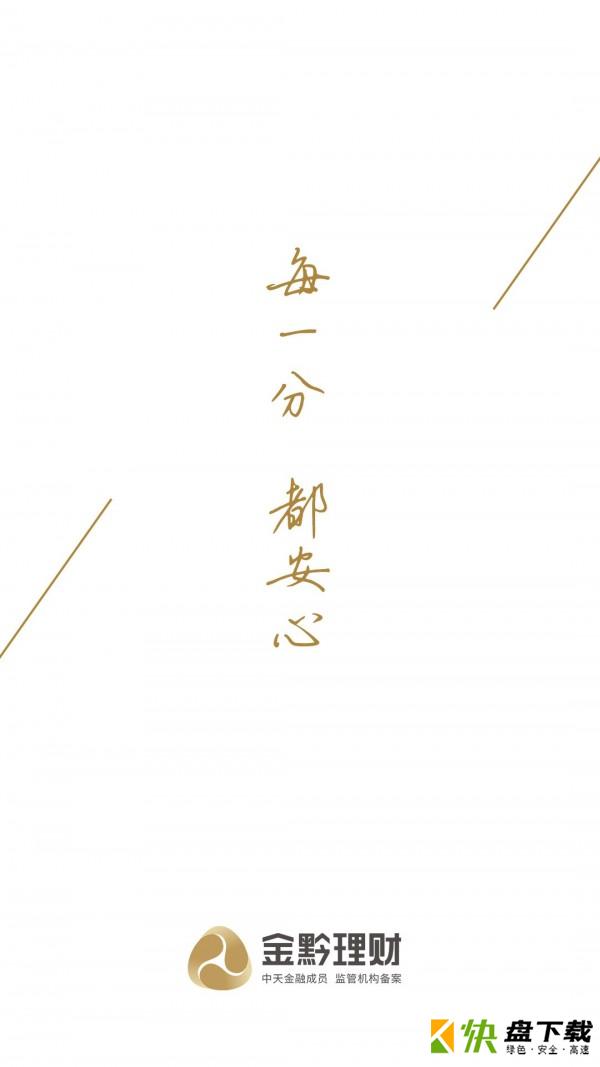 每一分 都安心
金黔理财
中天金融成员 监管机构备案
快盘下载
绿色·安全·高速